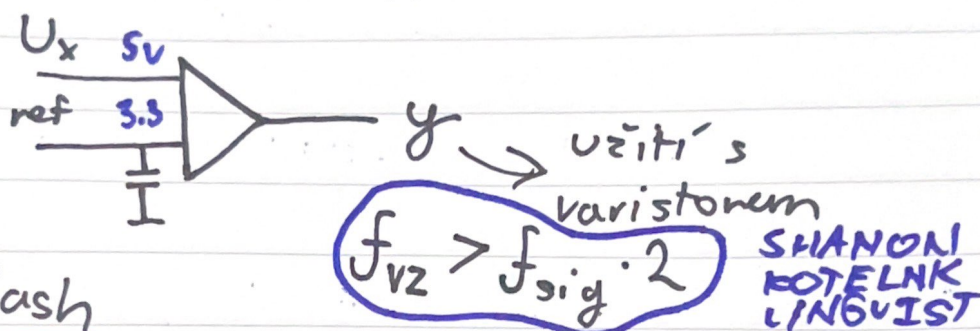 Ux 5V
ref 3.3
y
užití s
varistorem
fvz > fsig · 2
SHANON
KOTELNK
LINGUIST
ash